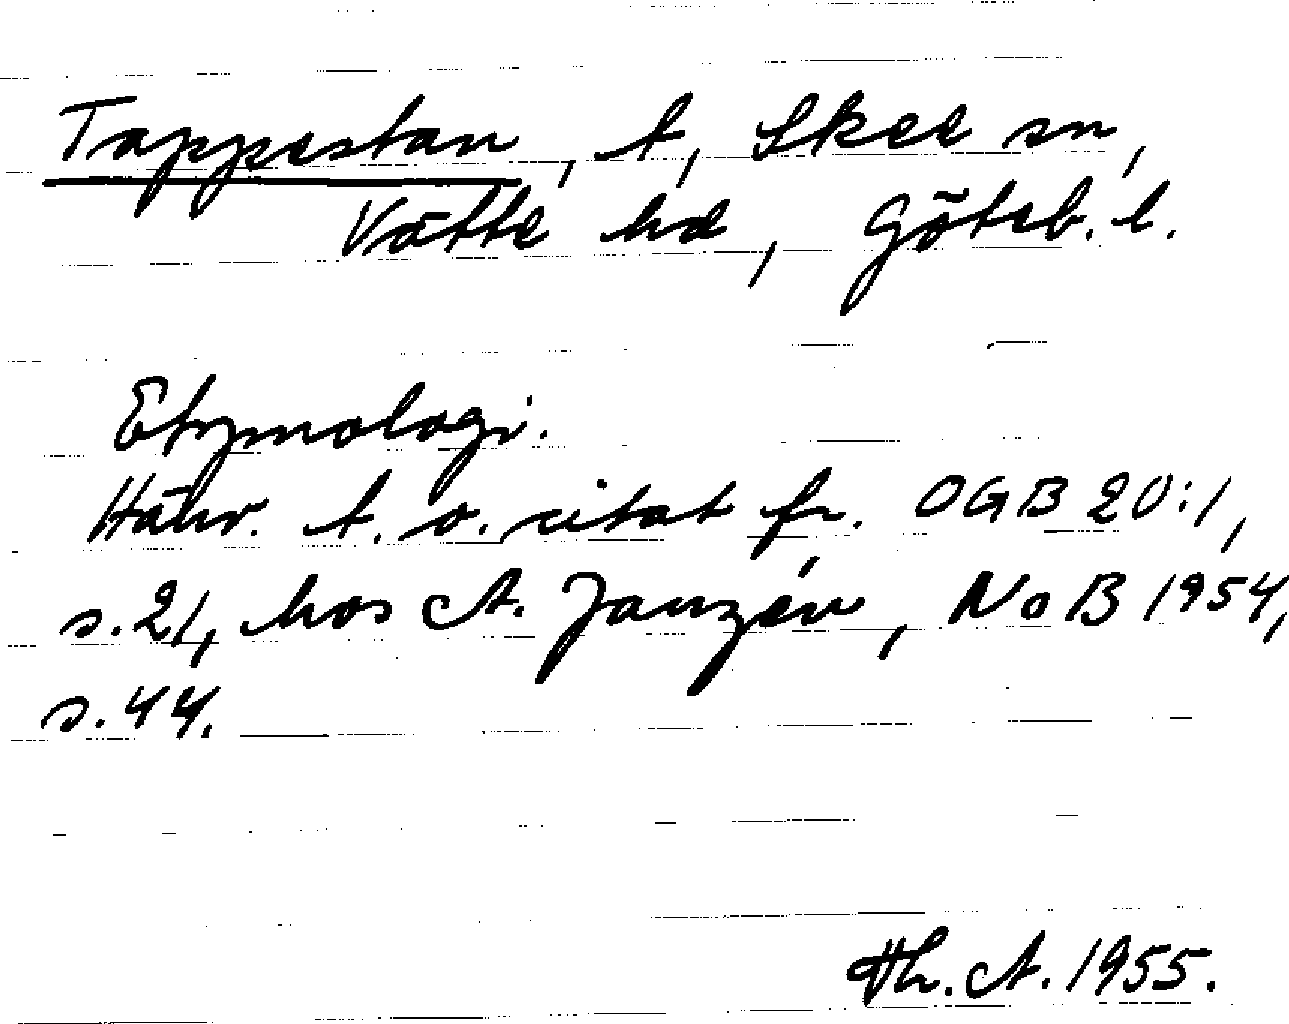 Tappestan, t, Skee sn,
Vätte hd, Göteb. l.
Etymologi.
Hänv. t. o. citat fr. OGB 20:1,
s. 21, hos A. Janzén, NoB 1954,
s. 44.
Hh. A. 1955.